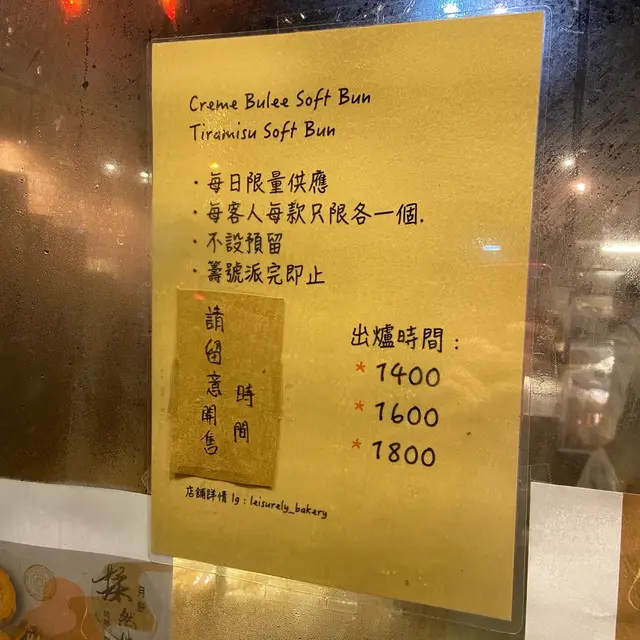 Creme Bulee Soft Bun
Tiramisu Soft Bun
· 每日限量供應
· 每客人每款只限各一個.
· 不設預留
· 籌號派完即止
請留意開售
時間
出爐時間:
* 1400
* 1600
* 1800
店舖詳情 Ig : leisurely_bakery